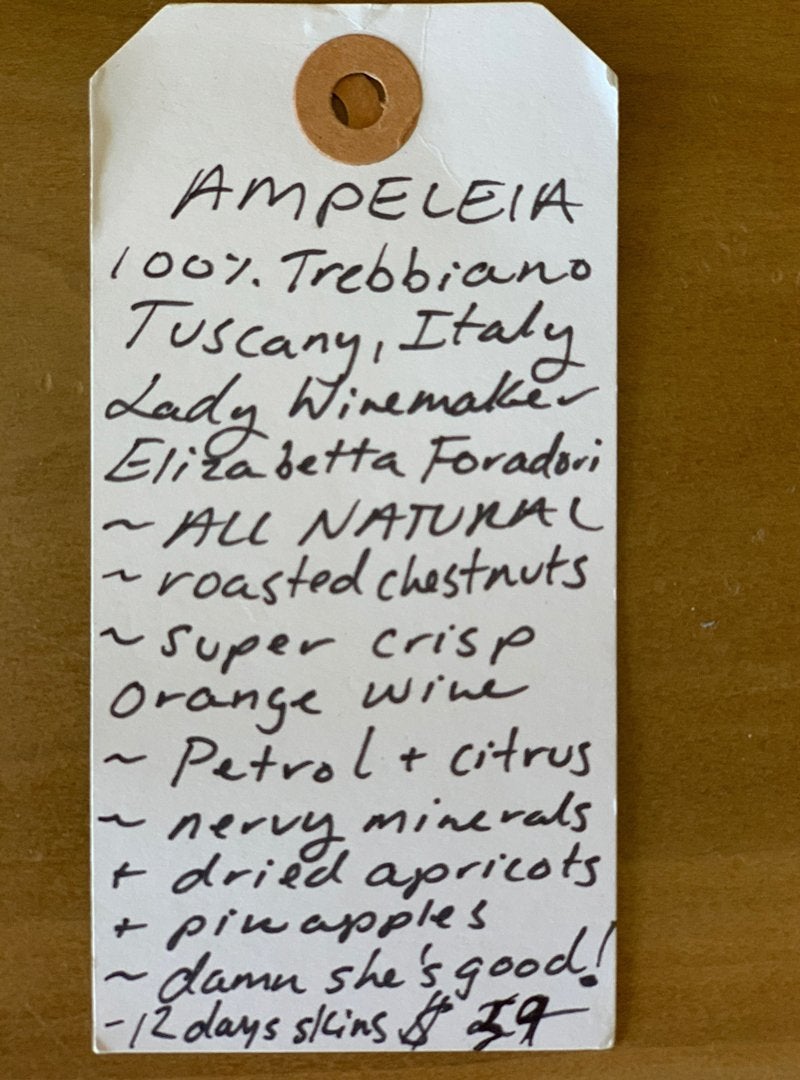 AMPELEIA
100%. Trebbiano
Tuscany, Italy
Lady Winemaker
Elizabetta Foradori
~ ALL NATURAL
~ roasted chestnuts
~ super crisp
orange wine
~ Petrol + citrus
~ nervy minerals
+ dried apricots
+ pineapples
~ damn she's good!
-12 days skins $